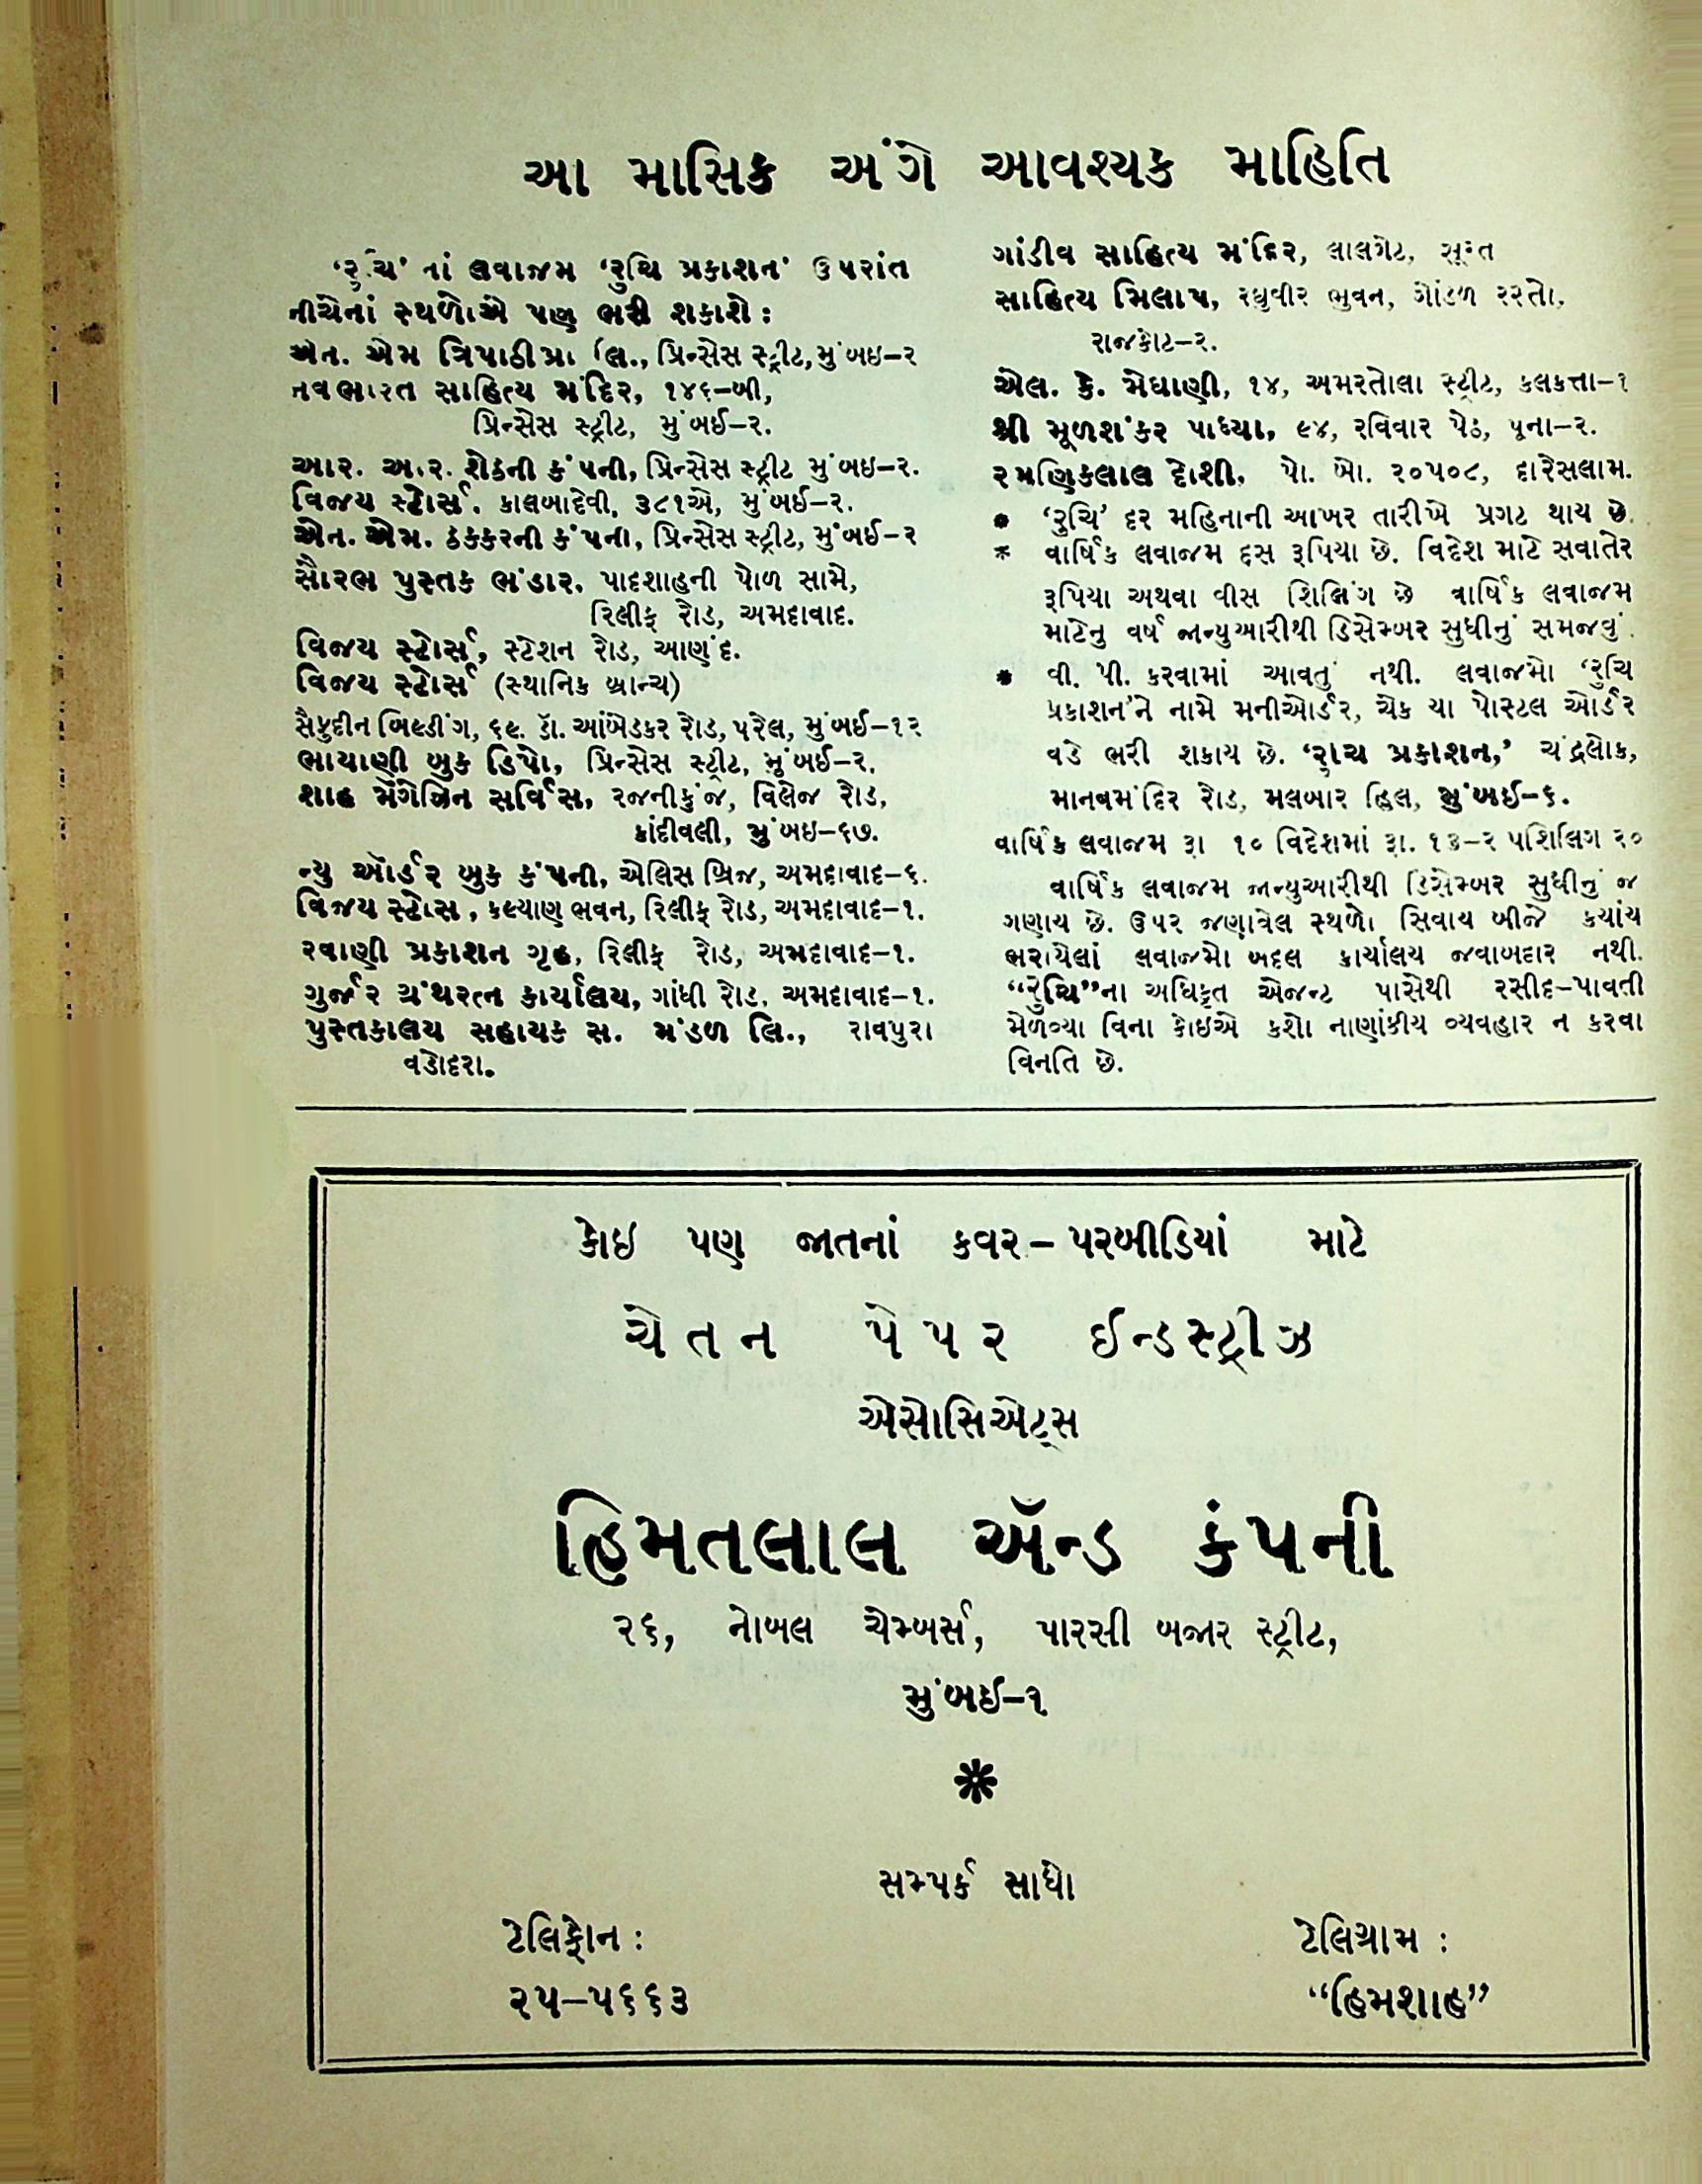 આ માસિક અંગે આવશ્યક માહિતિ
‘રુચિ’ નાં લવાજમ ‘રુચિ પ્રકાશન’ ઉપરાંત
નીચેનાં સ્થળોએ પણ ભરી શકાશે :
એન. એમ ત્રિપાઠી પ્રા લિ., પ્રિન્સેસ સ્ટ્રીટ, મુંબઇ–૨
નવભારત સાહિત્ય મંદિર, ૧૪૬–બી,
પ્રિન્સેસ સ્ટ્રીટ, મુંબઈ–૨.
આર. આર. શેઠની કંપની, પ્રિન્સેસ સ્ટ્રીટ મુંબઇ–૨.
વિજય સ્ટોર્સ, કાલબાદેવી, ૩૮૧એ, મુંબઈ–૨.
એન. એમ. ઠક્કરની કંપની, પ્રિન્સેસ સ્ટ્રીટ, મુંબઈ–૨
સૌરભ પુસ્તક ભંડાર, પાદશાહની પોળ સામે,
રિલીફ રોડ, અમદાવાદ.
વિજય સ્ટોર્સ, સ્ટેશન રોડ, આણંદ.
વિજય સ્ટોર્સ (સ્થાનિક બ્રાન્ચ)
સૈફુદીન બિલ્ડીંગ, ૬૯. ડૉ. આંબેડકર રોડ, પરેલ, મુંબઈ–૧૨
ભાયાણી બુક ડિપો, પ્રિન્સેસ સ્ટ્રીટ, મુંબઈ–૨.
શાહ મેગેઝિન સર્વિસ, રજનીકુંજ, વિલેજ રોડ,
કાંદીવલી, મુંબઇ–૬૭.
ન્યુ ઑર્ડર બુક કંપની, એલિસ બ્રિજ, અમદાવાદ–૬.
વિજય સ્ટોર્સ, કલ્યાણ ભવન, રિલીફ રોડ, અમદાવાદ–૧.
રવાણી પ્રકાશન ગૃહ, રિલીફ રોડ, અમદાવાદ–૧.
ગુર્જર ગ્રંથરત્ન કાર્યાલય, ગાંધી રોડ, અમદાવાદ–૧.
પુસ્તકાલય સહાયક સ. મંડળ લિ., રાવપુરા
વડોદરા.
ગાંડીવ સાહિત્ય મંદિર, લાલગેટ, સૂરત
સાહિત્ય મિલાપ, રઘુવીર ભુવન, ગોંડળ રસ્તો,
રાજકોટ–૨.
એલ. કે. મેઘાણી, ૧૪, અમરતોલા સ્ટ્રીટ, કલકત્તા–૧
શ્રી મૂળશંકર પાધ્યા, ૯૪, રવિવાર પેઠ, પૂના–૨.
રમણિકલાલ દોશી, પો. બો. ૨૦૫૦૮, દારેસલામ.
* ‘રુચિ’ દર મહિનાની આખર તારીખે પ્રગટ થાય છે.
* વાર્ષિક લવાજમ દસ રૂપિયા છે. વિદેશ માટે સવાતેર
રૂપિયા અથવા વીસ શિલિંગ છે વાર્ષિક લવાજમ
માટેનુ વર્ષ જાન્યુઆરીથી ડિસેમ્બર સુધીનું સમજવું.
* વી. પી. કરવામાં આવતું નથી. લવાજમો ‘રુચિ
પ્રકાશન’ને નામે મનીઓર્ડર, ચેક યા પોસ્ટલ ઓર્ડર
વડે ભરી શકાય છે. ‘રુચિ પ્રકાશન,’ ચંદ્રલોક,
માનવમંદિર રોડ, મલબાર હિલ, મુંબઈ–૬.
વાર્ષિક લવાજમ રૂા ૧૦ વિદેશમાં રૂા. ૧૩–૨૫ શિલિગ ૨૦
વાર્ષિક લવાજમ જાન્યુઆરીથી ડિસેમ્બર સુધીનું જ
ગણાય છે. ઉપર જણાવેલ સ્થળો સિવાય બીજે કયાંય
ભરાયેલાં લવાજમો બદલ કાર્યાલય જવાબદાર નથી.
“રુચિ”ના અધિકૃત એજન્ટ પાસેથી રસીદ–પાવતી
મેળવ્યા વિના કોઇએ કશો નાણાંકીય વ્યવહાર ન કરવા
વિનતિ છે.
કોઇ પણ જાતનાં કવર – પરબીડિયાં માટે
ચેતન પેપર ઈન્ડસ્ટ્રીઝ
એસોસિએટ્સ
હિમતલાલ ઍન્ડ કંપની
૨૬, નોબલ ચેમ્બર્સ, પારસી બજાર સ્ટ્રીટ,
મુંબઈ–૧
સમ્પર્ક સાધો
ટેલિફોન : ટેલિગ્રામ :
૨૫–૫૬૬૩ “હિમશાહ”